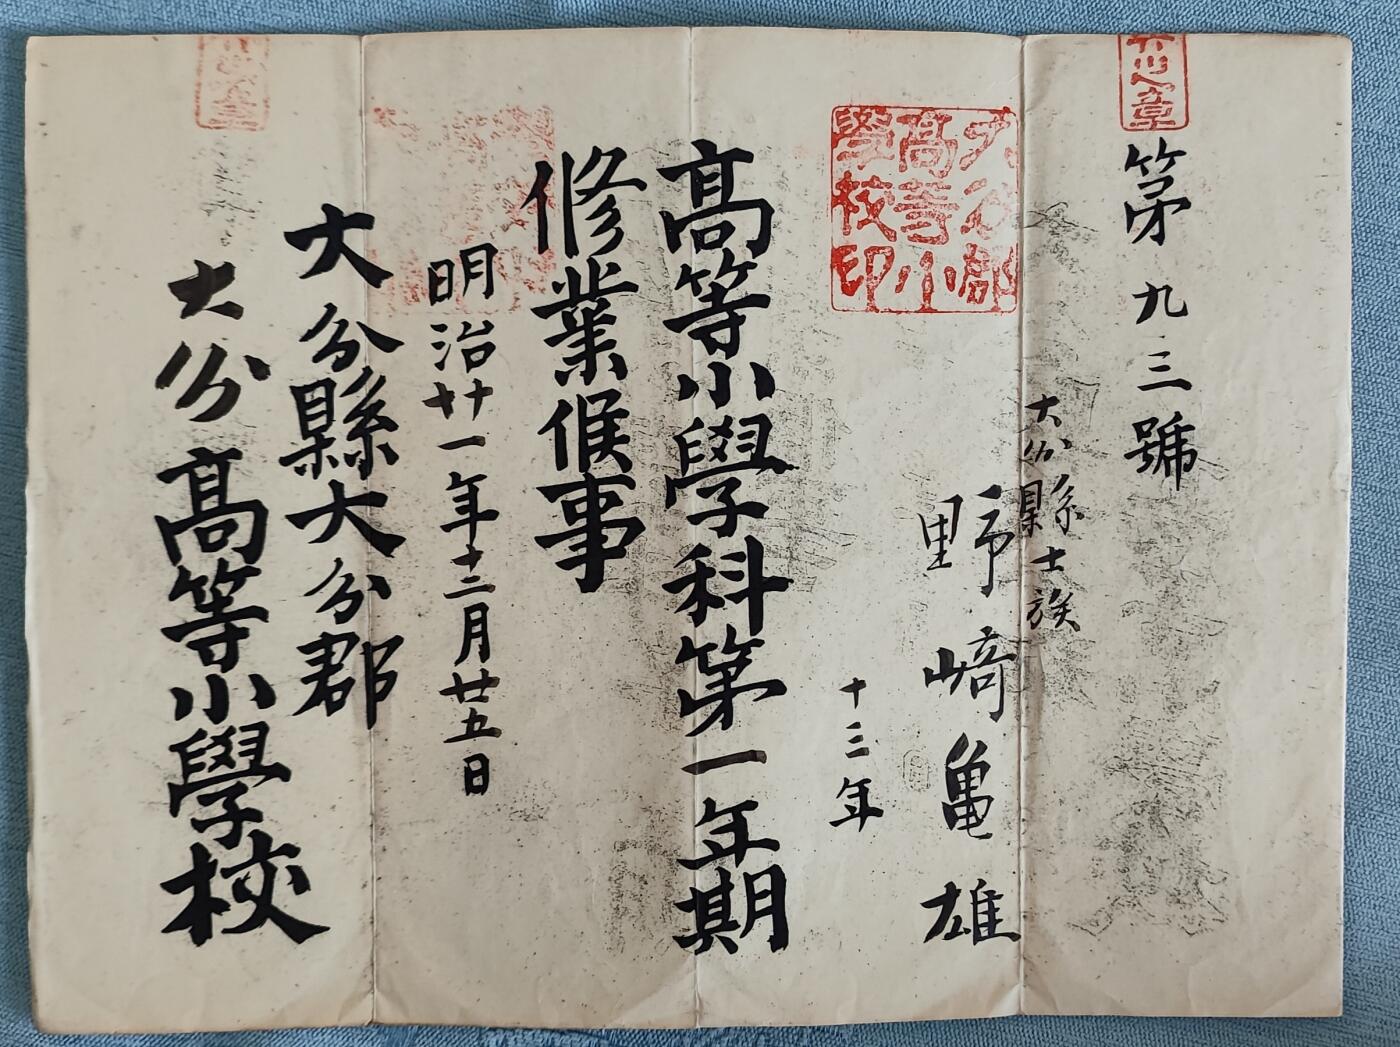 第九三號
大分縣士族
野﨑亀雄
十三年
大分郡
高等小
學校印
高等小學科第一年期
修業候事
明治廿一年十二月廿五日
大分縣大分郡
大分高等小學校